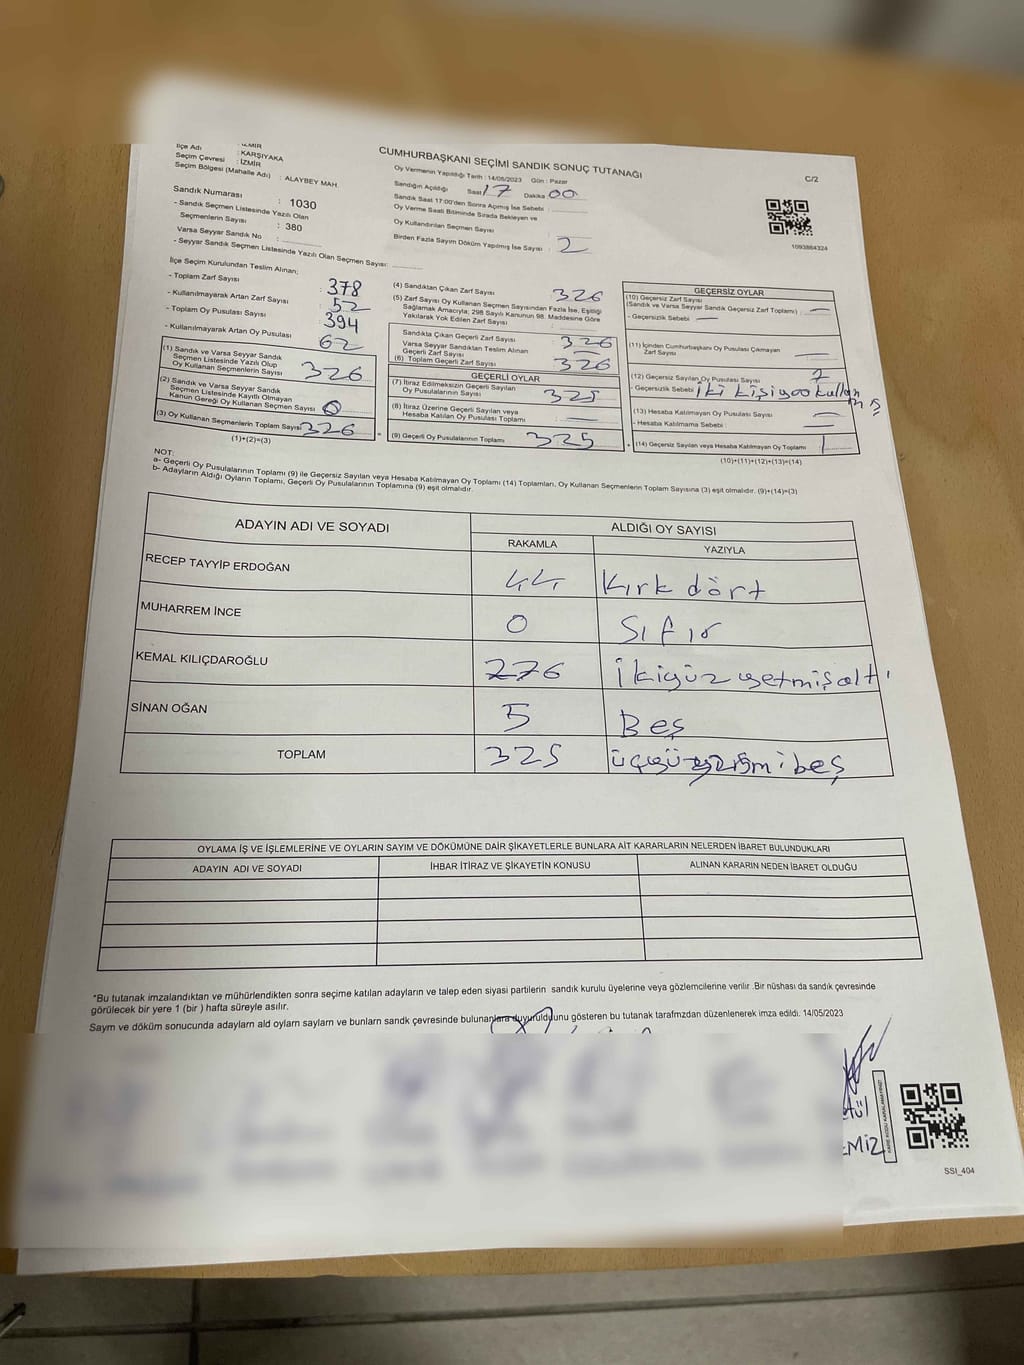 İZMİR
İlçe Adı : KARŞIYAKA
Seçim Çevresi : İZMİR
Seçim Bölgesi (Mahalle Adı) : ALAYBEY MAH.
Sandık Numarası : 1030
- Sandık Seçmen Listesinde Yazılı Olan
Seçmenlerin Sayısı : 380
Varsa Seyyar Sandık No :
- Seyyar Sandık Seçmen Listesinde Yazılı Olan Seçmen Sayısı:
CUMHURBAŞKANI SEÇİMİ SANDIK SONUÇ TUTANAĞI
Oy Vermenin Yapıldığı Tarih : 14/05/2023 Gün : Pazar
Sandığın Açıldığı Saat 17 Dakika 00
Sandık Saat 17:00'den Sonra Açımış İse Sebebi :
Oy Verme Saati Bitiminde Sırada Bekleyen ve
Oy Kullandırılan Seçmen Sayısı
Birden Fazla Sayım Döküm Yapılmış İse Sayısı : 2
C/2
1093864324
İlçe Seçim Kurulundan Teslim Alınan;
- Toplam Zarf Sayısı : 378
- Kullanılmayarak Artan Zarf Sayısı : 52
- Toplam Oy Pusulası Sayısı : 394
- Kullanılmayarak Artan Oy Pusulası 62
(1) Sandık ve Varsa Seyyar Sandık
Seçmen Listesinde Yazılı Olup
Oy Kullanan Seçmenlerin Sayısı : 326
(2) Sandık ve Varsa Seyyar Sandık
Seçmen Listesinde Kayıtlı Olmayan
Kanun Gereği Oy Kullanan Seçmen Sayısı 0
(3) Oy Kullanan Seçmenlerin Toplam Sayısı 326
(1)+(2)=(3)
(4) Sandıktan Çıkan Zarf Sayısı : 326
(5) Zarf Sayısı Oy Kullanan Seçmen Sayısından Fazla İse, Eşitliği
Sağlamak Amacıyla; 298 Sayılı Kanunun 98. Maddesine Göre
Yakılarak Yok Edilen Zarf Sayısı
Sandıkta Çıkan Geçerli Zarf Sayısı : 326
Varsa Seyyar Sandıktan Teslim Alınan
Geçerli Zarf Sayısı
(6) Toplam Geçerli Zarf Sayısı : 326
GEÇERLİ OYLAR
(7) İtiraz Edilmeksizin Geçerli Sayılan
Oy Pusulalarının Sayısı : 325
(8) İtiraz Üzerine Geçerli Sayılan veya
Hesaba Katılan Oy Pusulası Toplamı
(9) Geçerli Oy Pusulalarının Toplamı : 325
GEÇERSİZ OYLAR
(10) Geçersiz Zarf Sayısı
(Sandık ve Varsa Seyyar Sandık Geçersiz Zarf Toplamı) : —
- Geçersizlik Sebebi : —
(11) İçinden Cumhurbaşkanı Oy Pusulası Çıkmayan
Zarf Sayısı —
(12) Geçersiz Sayılan Oy Pusulası Sayısı
- Geçersizlik Sebebi : iki kişiye oy kullan
mış
(13) Hesaba Katılmayan Oy Pusulası Sayısı —
- Hesaba Katılmama Sebebi : —
(14) Geçersiz Sayılan veya Hesaba Katılmayan Oy Toplamı : 1
(10)+(11)+(12)+(13)=(14)
NOT:
a- Geçerli Oy Pusulalarının Toplamı (9) ile Geçersiz Sayılan veya Hesaba Katılmayan Oy Toplamı (14) Toplamları, Oy Kullanan Seçmenlerin Toplam Sayısına (3) eşit olmalıdır. (9)+(14)=(3)
b- Adayların Aldığı Oyların Toplamı, Geçerli Oy Pusulalarının Toplamına (9) eşit olmalıdır.
ADAYIN ADI VE SOYADI ALDIĞI OY SAYISI
RAKAMLA YAZIYLA
RECEP TAYYİP ERDOĞAN 44 Kırk dört
MUHARREM İNCE 0 Sıfır
KEMAL KILIÇDAROĞLU 276 İkiyüz yetmişaltı
SİNAN OĞAN 5 Beş
TOPLAM 325 üçyüzyirmibeş
OYLAMA İŞ VE İŞLEMLERİNE VE OYLARIN SAYIM VE DÖKÜMÜNE DAİR ŞİKAYETLERLE BUNLARA AİT KARARLARIN NELERDEN İBARET BULUNDUKLARI
ADAYIN ADI VE SOYADI İHBAR İTİRAZ VE ŞİKAYETİN KONUSU ALINAN KARARIN NEDEN İBARET OLDUĞU
*Bu tutanak imzalandıktan ve mühürlendikten sonra seçime katılan adayların ve talep eden siyasi partilerin sandık kurulu üyelerine veya gözlemcilerine verilir .Bir nüshası da sandık çevresinde
görülecek bir yere 1 (bir ) hafta süreyle asılır.
Sayım ve döküm sonucunda adayların ald oyların sayıların ve bunların sandk çevresinde bulunanlara duyurulduunu gösteren bu tutanak tarafımzdan düzenlenerek imza edildi. 14/05/2023
SSI_404